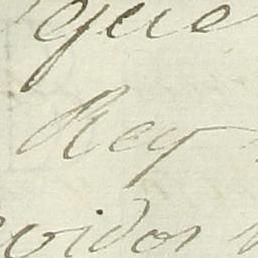 que
Rey
vidos